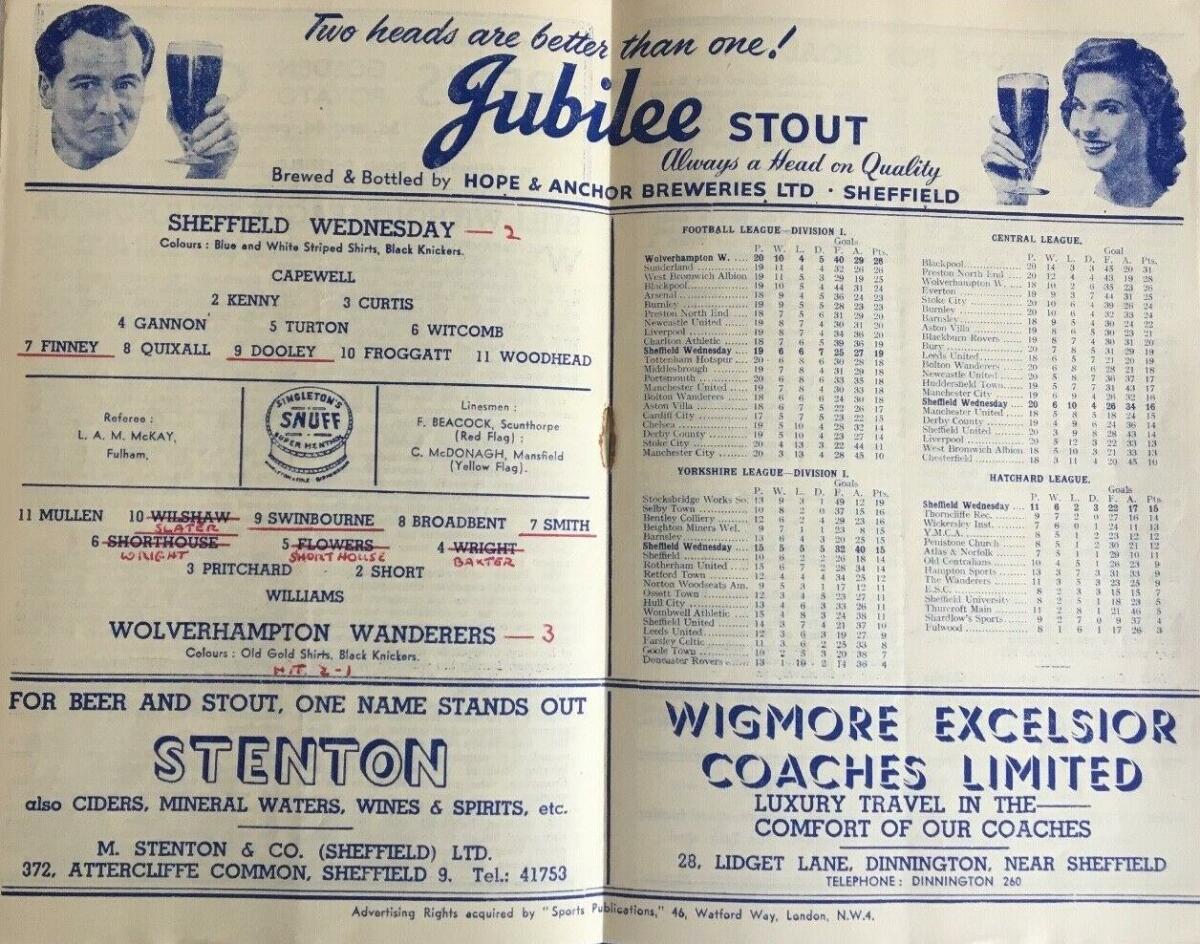 Two heads are better than one!
Jubilee STOUT
Always a Head on Quality
Brewed & Bottled by HOPE & ANCHOR BREWERIES LTD · SHEFFIELD
SHEFFIELD WEDNESDAY — 2
Colours : Blue and White Striped Shirts, Black Knickers.
CAPEWELL
2 KENNY 3 CURTIS
4 GANNON 5 TURTON 6 WITCOMB
7 FINNEY 8 QUIXALL 9 DOOLEY 10 FROGGATT 11 WOODHEAD
Referee :
L. A. M. McKAY,
Fulham,
SINGLETON'S
SNUFF
SUPER MENTHOL
Linesmen :
F. BEACOCK, Scunthorpe
(Red Flag) :
C. McDONAGH, Mansfield
(Yellow Flag).
11 MULLEN 10 WILSHAW 9 SWINBOURNE 8 BROADBENT 7 SMITH
SLATER
6 SHORTHOUSE 5 FLOWERS 4 WRIGHT
WRIGHT SHORTHOUSE BAXTER
3 PRITCHARD 2 SHORT
WILLIAMS
WOLVERHAMPTON WANDERERS — 3
Colours : Old Gold Shirts, Black Knickers.
H.T. 2-1
FOOTBALL LEAGUE—DIVISION I.
Goals
P. W. L. D. F. A. Pts.
Wolverhampton W. 20 10 4 5 40 29 26
Sunderland 19 11 4 4 32 26 26
West Bromwich Albion 19 11 5 3 29 19 25
Blackpool 19 10 5 4 44 31 24
Arsenal 18 9 4 5 36 24 23
Burnley 19 9 5 5 28 23 23
Preston North End 18 7 5 6 31 29 20
Newcastle United 19 8 7 4 30 31 20
Liverpool 19 8 7 4 34 36 20
Charlton Athletic 18 7 6 5 39 36 19
Sheffield Wednesday 19 6 6 7 25 27 19
Tottenham Hotspur 20 6 8 6 30 28 18
Middlesbrough 19 7 8 4 31 29 18
Portsmouth 20 6 8 6 33 35 18
Manchester United 19 7 8 4 30 33 18
Bolton Wanderers 18 6 6 6 24 30 18
Aston Villa 18 6 7 5 22 26 17
Cardiff City 17 5 7 5 23 22 15
Chelsea 19 5 10 4 28 32 14
Derby County 19 5 10 4 23 27 14
Stoke City 20 4 13 3 22 44 11
Manchester City 20 3 13 4 28 45 10
YORKSHIRE LEAGUE—DIVISION I.
Goals
P. W. L. D. F. A. Pts.
Stocksbridge Works So. 13 9 3 1 49 12 19
Selby Town 10 8 2 0 37 15 16
Bentley Colliery 12 6 2 4 29 23 16
Beighton Miners Wel. 9 7 1 1 23 8 15
Barnsley 13 6 4 3 20 25 15
Sheffield Wednesday 15 5 5 5 32 40 15
Sheffield 10 6 2 2 26 18 14
Rotherham United 15 6 7 2 28 34 14
Retford Town 12 4 4 4 34 25 12
Norton Woodseats Am. 9 5 3 1 17 12 11
Ossett Town 12 3 4 5 23 27 11
Hull City 13 4 6 3 33 26 11
Wombwell Athletic 15 4 8 3 24 38 11
Sheffield United 14 3 7 4 21 37 10
Leeds United 12 3 6 3 19 27 9
Farsley Celtic 11 3 6 2 25 33 8
Goole Town 10 2 5 3 20 38 7
Doncaster Rovers 13 1 10 2 14 36 4
CENTRAL LEAGUE.
Goal
P. W. L. D. F. A. Pts.
Blackpool 20 14 3 3 45 20 31
Preston North End 20 12 4 4 43 19 28
Wolverhampton W. 18 10 2 6 35 23 26
Everton 19 9 3 7 44 31 25
Stoke City 20 10 6 4 39 26 24
Burnley 20 10 6 4 32 33 24
Barnsley 18 9 5 4 30 24 22
Aston Villa 19 8 6 5 30 23 21
Blackburn Rovers 19 8 7 4 30 31
Bury 20 7 8 5 31 29 19
Leeds United 18 6 5 7 21 20 19
Bolton Wanderers 20 6 8 6 28 21 18
Newcastle United 20 5 8 7 36 37 17
Huddersfield Town 19 5 7 7 31 43 17
Manchester City 19 6 9 4 26 32 16
Sheffield Wednesday 20 6 10 4 26 34 16
Manchester United 18 5 8 5 18 24 15
Derby County 19 4 9 6 24 36 14
Sheffield United 20 3 9 8 28 43 14
Liverpool 20 5 12 3 22 33 13
West Bromwich Albion 18 5 10 3 21 33 13
Chesterfield 18 3 11 4 20 45 10
HATCHARD LEAGUE.
Goals
P. W. L. D. F. A. Pts.
Sheffield Wednesday 11 6 2 3 22 17 15
Thorncliffe Rec. 9 7 2 0 27 16 14
Wickersley Inst. 7 6 0 1 24 11 13
Y.M.C.A. 8 5 1 2 23 12 12
Penistone Church 8 5 1 2 30 21 12
Atlas & Norfolk 7 5 1 1 29 10 11
Old Centralians 10 4 5 1 26 23 9
Hampton Sports 13 3 7 3 31 33 9
The Wanderers 11 3 5 3 23 25 9
E.S.C. 8 2 3 3 15 15 7
Sheffield University 8 2 5 1 18 23 5
Thurcroft Main 11 2 8 1 21 46 5
Shardlow's Sports 9 2 7 0 9 37 4
Fulwood 8 1 6 1 17 26 3
FOR BEER AND STOUT, ONE NAME STANDS OUT
STENTON
also CIDERS, MINERAL WATERS, WINES & SPIRITS, etc.
M. STENTON & CO. (SHEFFIELD) LTD.
372, ATTERCLIFFE COMMON, SHEFFIELD 9. Tel.: 41753
WIGMORE EXCELSIOR
COACHES LIMITED
LUXURY TRAVEL IN THE—
COMFORT OF OUR COACHES
28, LIDGET LANE, DINNINGTON, NEAR SHEFFIELD
TELEPHONE : DINNINGTON 260
Advertising Rights acquired by "Sports Publications," 46, Watford Way, London, N.W.4.